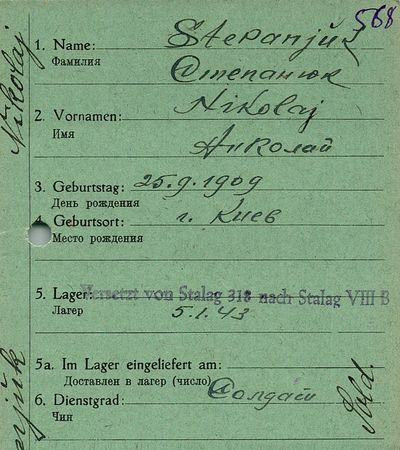 568
1. Name: Stepanjuk
Фамилия Степанюк
2. Vornamen: Nikolaj
Имя Николай
3. Geburtstag: 25.9.1909
День рождения
4. Geburtsort: г. Киев
Место рождения
5. Lager: Versetzt von Stalag 318 nach Stalag VIII B
Лагер 5.1.43
5a. Im Lager eingeliefert am:
Доставлен в лагер (число)
6. Dienstgrad: Солдат
Чин
Sold.
Nikolaj